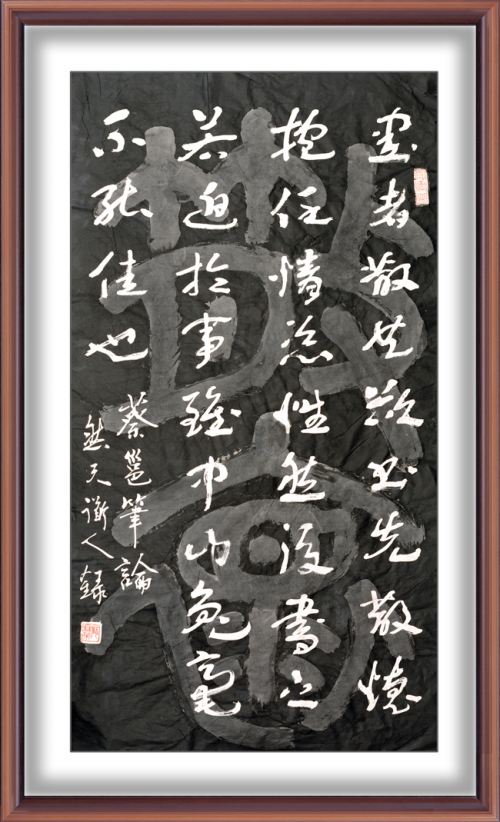 書者散也欲書先散懷
抱任情恣性然後書之
若迫於事雖中山兔毫
不能佳也
蔡邕筆論
然天人録